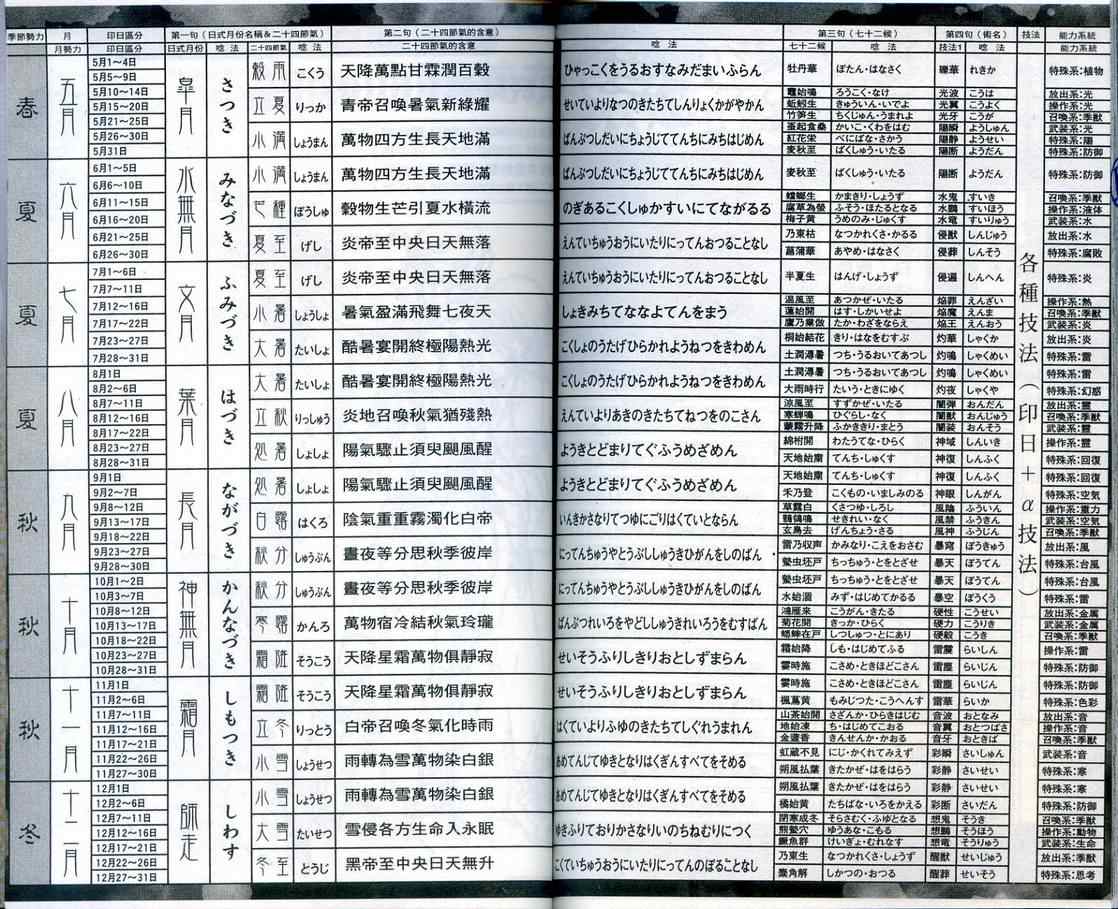 季節勢力 月 印日區分 第一句（日式月份名稱＆二十四節氣） 第二句（二十四節氣的含意） 第三句（七十二候） 第四句（術名） 技法 能力系統
月勢力 印日區分 日式月份 唸法 二十四節氣 唸法 二十四節氣的含意 唸法 七十二候 唸法 技法1 唸法 能力系統
各種技法（印日＋α技法）
春 五月 皐月 さつき
5月1～4日 穀雨 こくう 天降萬點甘霖潤百穀 ひゃっこくをうるおすなみだまいふらん 牡丹華 ぼたん・はなさく 礫華 れきか 特殊系:植物
5月5～9日 立夏 りっか 青帝召喚暑氣新綠耀 せいていよりなつのきたちてしんりょくかがやかん 鼃始鳴 ろうこく・なけ 光波 こうは 放出系:光
5月10～14日 蚯蚓生 きゅういん・いでよ 光翼 こうよく 操作系:光
5月15～20日 竹笋生 ちくじゅん・うまれよ 光牙 こうが 召喚系:季獸
5月21～25日 小満 しょうまん 萬物四方生長天地滿 ばんぶつしだいにちょうじててんちにみちはじめん 蚕起食桑 かいこ・くわをはむ 陽瞬 ようしゅん 武装系:光
5月26～30日 紅花栄 べにばな・さかう 陽静 ようせい 特殊系:陽
5月31日 麦秋至 ばくしゅう・いたる 陽断 ようだん 特殊系:防御
夏 六月 水無月 みなづき
6月1～5日 小満 しょうまん 萬物四方生長天地滿 ばんぶつしだいにちょうじててんちにみちはじめん 麦秋至 ばくしゅう・いたる 陽断 ようだん 特殊系:防御
6月6～10日 芒種 ぼうしゅ 穀物生芒引夏水橫流 のぎあるこくしゅかすいにてながるる 蟷螂生 かまきり・しょうず 水鬼 すいき 召喚系:季獸
6月11～15日 腐草為螢 ふそう・ほたるとなる 水鵬 すいほう 操作系:液体
6月16～20日 梅子黄 うめのみ・じゅくす 水竜 すいりゅう 武装系:水
6月21～25日 夏至 げし 炎帝至中央日天無落 えんていちゅうおうにいたりにってんおつることなし 乃東枯 なつかれくさ・かるる 侵獣 しんじゅう 放出系:水
6月26～30日 菖蒲華 あやめ・はなさく 侵葬 しんそう 特殊系:腐敗
夏 七月 文月 ふみづき
7月1～6日 夏至 げし 炎帝至中央日天無落 えんていちゅうおうにいたりにってんおつることなし 半夏生 はんげ・しょうず 侵遍 しんへん 特殊系:炎
7月7～11日 小暑 しょうしょ 暑氣盈滿飛舞七夜天 しょきみちてななよてんをまう 温風至 あつかぜ・いたる 焔罪 えんざい 操作系:熱
7月12～16日 蓮始開 はす・しかいせよ 焔魔 えんま 召喚系:季獸
7月17～22日 鷹乃業倣 たか・わざをならえ 焔王 えんおう 武装系:炎
7月23～27日 大暑 たいしょ 酷暑宴開終極陽熱光 こくしょのうたげひらかれようねつをきわめん 桐始結花 きり・はなをむすぶ 灼華 しゃくか 放出系:炎
7月28～31日 土潤溽暑 つち・うるおいてあつし 灼鳴 しゃくめい 特殊系:雷
夏 八月 葉月 はづき
8月1日 大暑 たいしょ 酷暑宴開終極陽熱光 こくしょのうたげひらかれようねつをきわめん 土潤溽暑 つち・うるおいてあつし 灼鳴 しゃくめい 特殊系:雷
8月2～6日 大雨時行 たいう・ときにゆく 灼夜 しゃくや 特殊系:幻惑
8月7～11日 立秋 りっしゅう 炎地召喚秋氣猶殘熱 えんていよりあきのきたちてねつをのこさん 涼風至 すずかぜ・いたる 闇弾 おんだん 放出系:靈
8月12～16日 寒蝉鳴 ひぐらし・なく 闇獣 おんじゅう 召喚系:季獸
8月17～22日 蒙霧升降 ふかききり・まとう 闇装 おんそう 武装系:靈
8月23～27日 処暑 しょしょ 陽氣驟止須臾颶風醒 ようきとどまりてぐふうめざめん 綿柎開 わたたてな・ひらく 神域 しんいき 操作系:靈
8月28～31日 天地始粛 てんち・しゅくす 神復 しんふく 特殊系:回復
秋 九月 長月 ながづき
9月1日 処暑 しょしょ 陽氣驟止須臾颶風醒 ようきとどまりてぐふうめざめん 天地始粛 てんち・しゅくす 神復 しんふく 特殊系:回復
9月2～7日 禾乃登 こくもの・いましみのる 神眼 しんがん 特殊系:空気
9月8～12日 白露 はくろ 陰氣重重霧濁化白帝 いんきかさなりてつゆにごりはくていとならん 草露白 くさつゆ・しろし 風陰 ふういん 操作系:重力
9月13～17日 鶺鴒鳴 せきれい・なく 風禁 ふうきん 武装系:空気
9月18～22日 玄鳥去 げんちょう・さる 風神 ふうじん 召喚系:季獸
9月23～27日 秋分 しゅうぶん 晝夜等分思秋季彼岸 にってんちゅうやとうぶししゅうきひがんをしのばん 雷乃収声 かみなり・こえをおさむ 暴穹 ぼうきゅう 放出系:風
9月28～30日 蟄虫坯戸 ちっちゅう・とをとざせ 暴天 ぼうてん 特殊系:台風
秋 十月 神無月 かんなづき
10月1～2日 秋分 しゅうぶん 晝夜等分思秋季彼岸 にってんちゅうやとうぶししゅうきひがんをしのばん 蟄虫坯戸 ちっちゅう・とをとざせ 暴天 ぼうてん 特殊系:台風
10月3～7日 水始涸 みず・はじめてかるる 暴空 ぼうくう 特殊系:雷
10月8～12日 寒露 かんろ 萬物宿冷結秋氣玲瓏 ばんぶつれいろをやどししゅうきれいろうをむすばん 鴻雁来 こうがん・きたる 硬性 こうせい 放出系:金属
10月13～17日 菊花開 きっか・ひらく 硬力 こうりき 武装系:金属
10月18～22日 蟋蟀在戸 しつしゅつ・とにあり 硬毅 こうき 召喚系:季獸
10月23～27日 霜降 そうこう 天降星霜萬物俱靜寂 せいそうふりしきりおとしずまらん 霜始降 しも・はじめてふる 雷震 らいしん 操作系:雷
10月28～31日 霎時施 こさめ・ときほどこさん 雷塵 らいじん 特殊系:防御
秋 十一月 霜月 しもつき
11月1日 霜降 そうこう 天降星霜萬物俱靜寂 せいそうふりしきりおとしずまらん 霎時施 こさめ・ときほどこさん 雷塵 らいじん 特殊系:防御
11月2～6日 楓蔦黄 もみじつた・こうへんす 雷華 らいか 特殊系:色彩
11月7～11日 立冬 りっとう 白帝召喚冬氣化時雨 はくていよりふゆのきたちてしぐれうまれん 山茶始開 さざんか・ひらきはじむ 音波 おとなみ 放出系:音
11月12～16日 地始凍 ち・はじめてこおる 音翼 おとつばさ 操作系:音
11月17～21日 金盞香 きんせんか・かおる 音牙 おときば 召喚系:季獸
11月22～26日 小雪 しょうせつ 雨轉為雪萬物染白銀 あめてんじてゆきとなりはくぎんすべてをそめる 虹蔵不見 にじ・かくれてみえず 彩瞬 さいしゅん 武装系:音
11月27～30日 朔風払葉 きたかぜ・はをはらう 彩静 さいせい 特殊系:寒
冬 十二月 師走 しわす
12月1日 小雪 しょうせつ 雨轉為雪萬物染白銀 あめてんじてゆきとなりはくぎんすべてをそめる 朔風払葉 きたかぜ・はをはらう 彩静 さいせい 特殊系:寒
12月2～6日 橘始黄 たちばな・いろをかえる 彩断 さいだん 特殊系:防御
12月7～11日 大雪 たいせつ 雪侵各方生命入永眠 ゆきふりておりかさなりいのちねむりにつく 閉寒成冬 そらさむく・ふゆとなる 想鬼 そうき 召喚系:季獸
12月12～16日 熊蟄穴 ゆうあな・こもる 想鵬 そうほう 操作系:動物
12月17～21日 鱖魚群 けいぎょ・むれなす 想竜 そうりゅう 武装系:生命
12月22～26日 冬至 とうじ 黑帝至中央日天無升 こくていちゅうおうにいたりにってんのぼることなし 乃東生 なつかれくさ・しょうず 醒獣 せいじゅう 放出系:季獸
12月27～31日 麋角解 しかつの・おつる 醒葬 せいそう 特殊系:思考